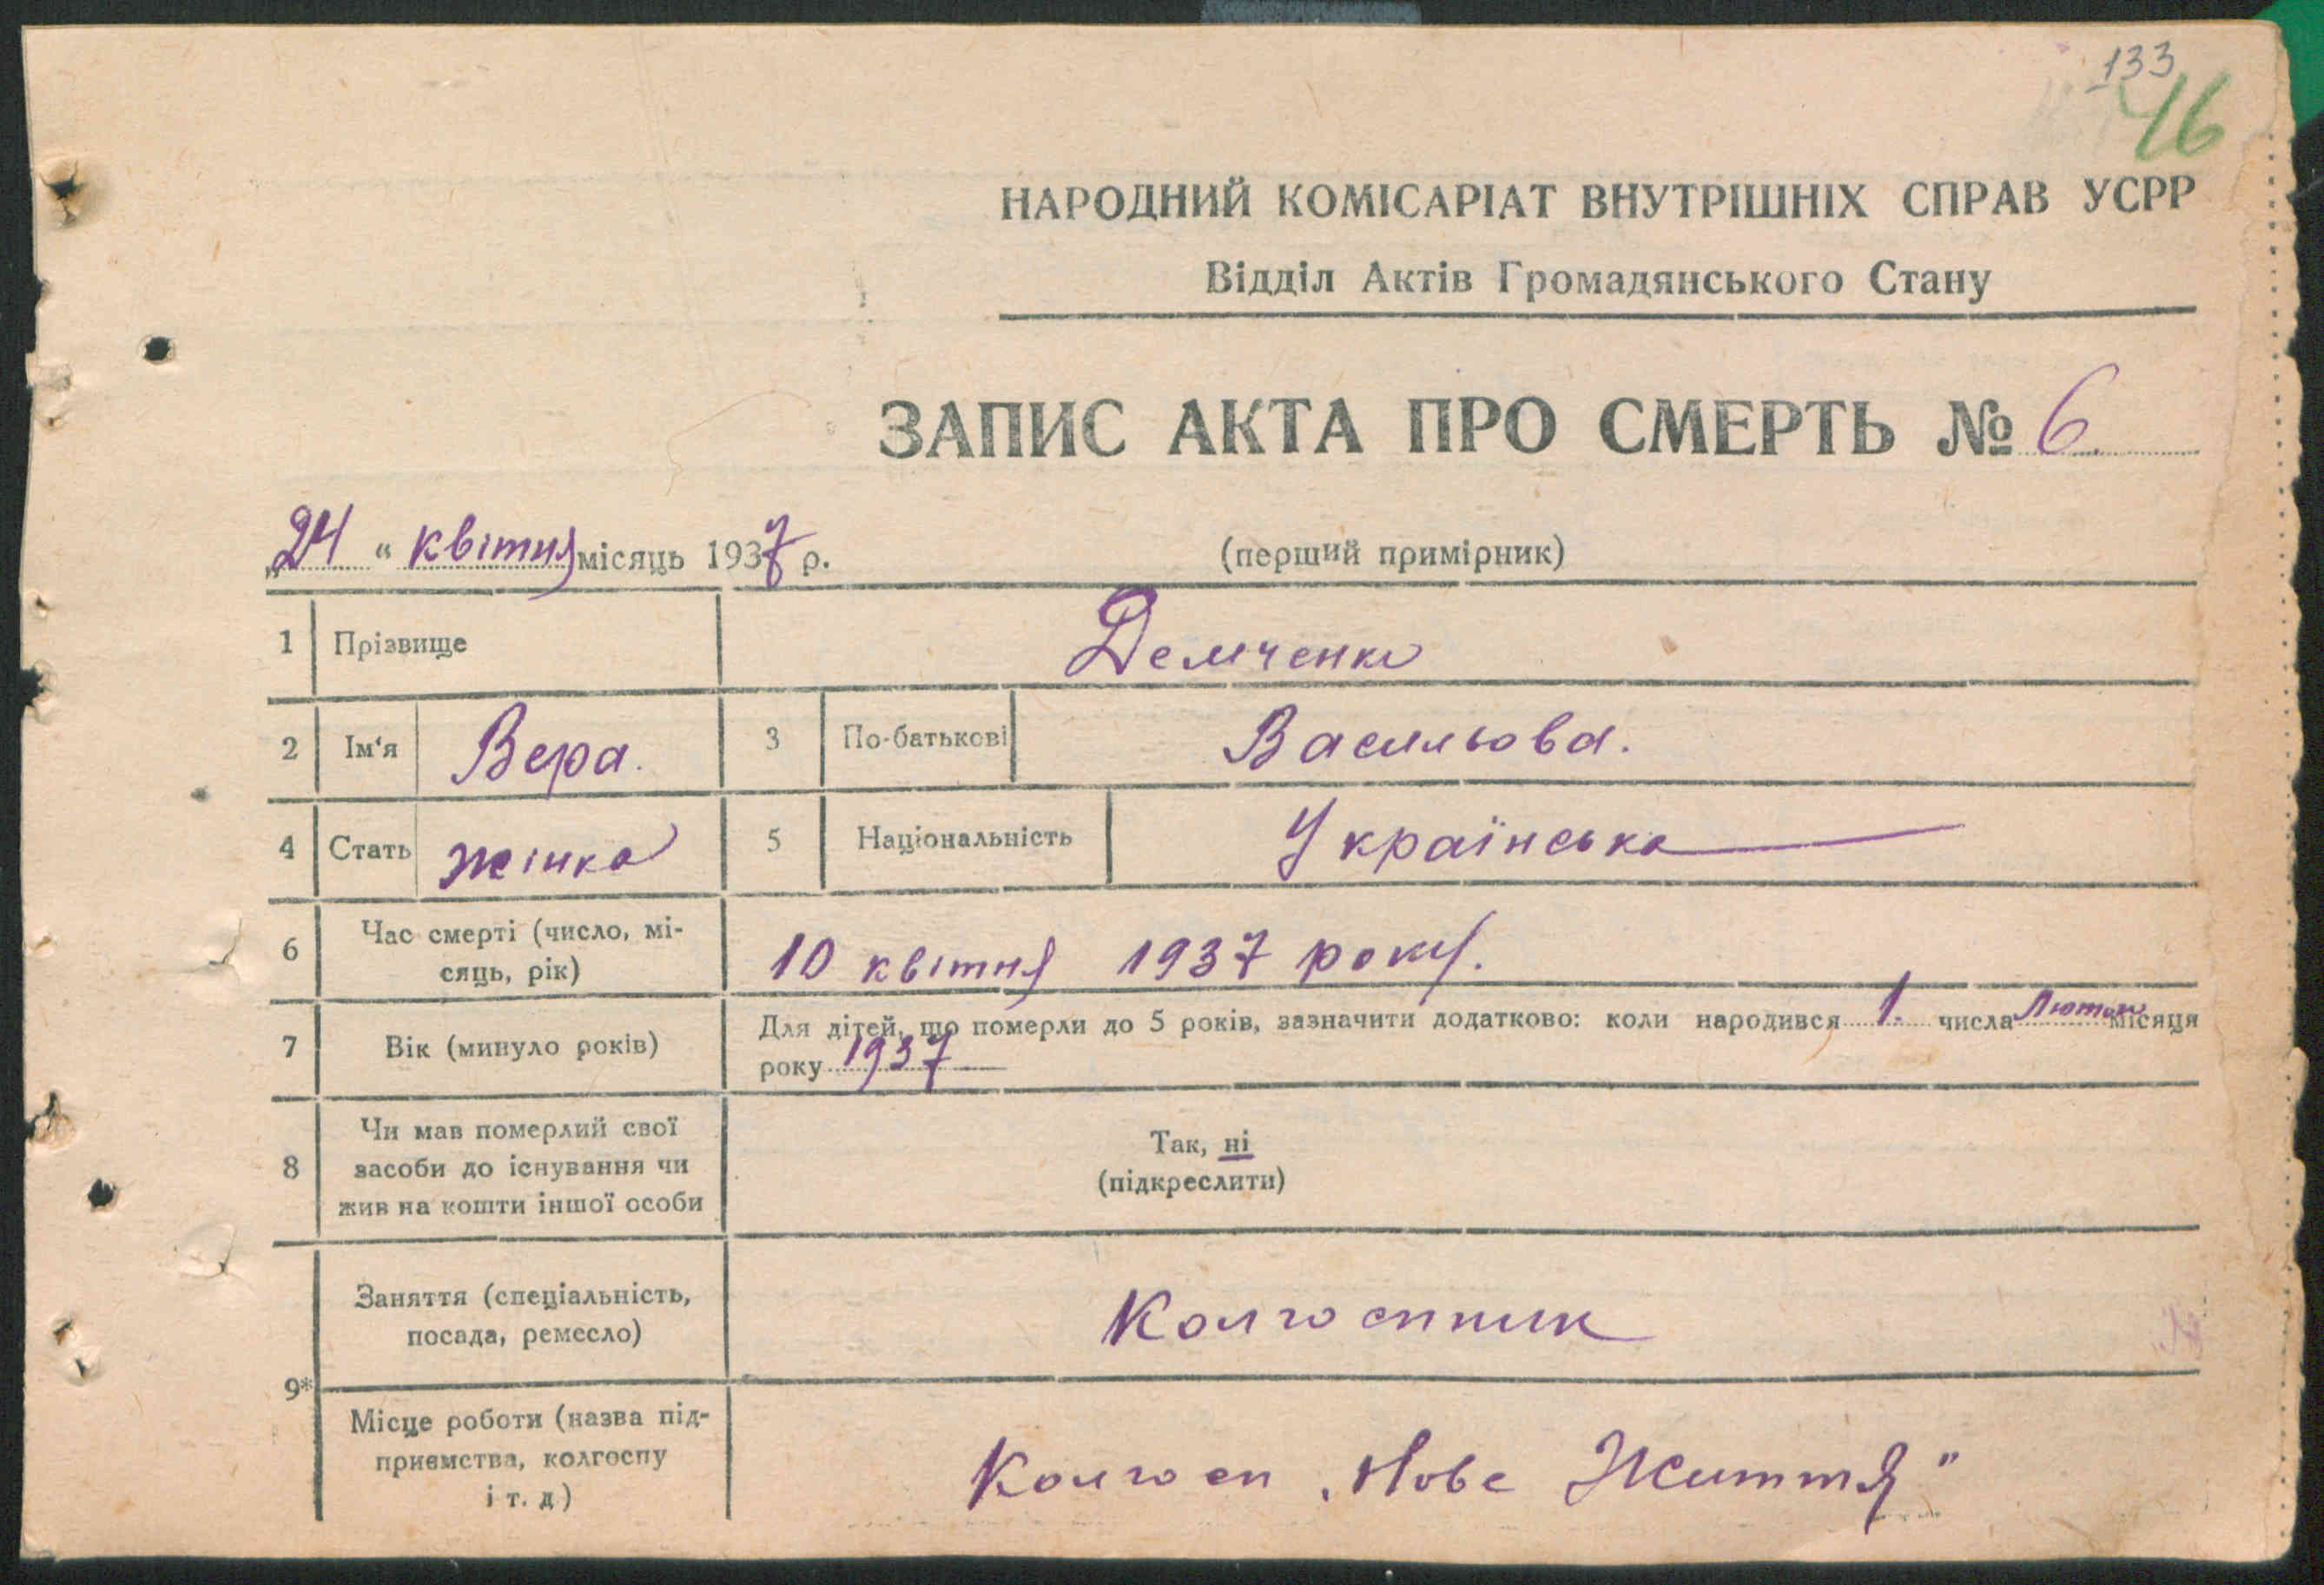 133
46
НАРОДНИЙ КОМІСАРІАТ ВНУТРІШНІХ СПРАВ УСРР
Відділ Актів Громадянського Стану
ЗАПИС АКТА ПРО СМЕРТЬ № 6
„24“ квітня місяць 1937 р.
(перший примірник)
1 Прізвище Демченко
2 Ім'я Вера. 3 По-батькові Васильова.
4 Стать жінка 5 Національність Українська
6 Час смерті (число, мі-
сяць, рік) 10 квітня 1937 року.
7 Вік (минуло років) Для дітей, що померли до 5 років, зазначити додатково: коли народився 1. числа Лютого місяця
року 1937
8 Чи мав померлий свої
засоби до існування чи
жив на кошти іншої особи
Так, ні
(підкреслити)
9*
Заняття (спеціальність,
посада, ремесло) Колгоспник
Місце роботи (назва під-
приємства, колгоспу
і т. д) Колгосп „Нове Життя"